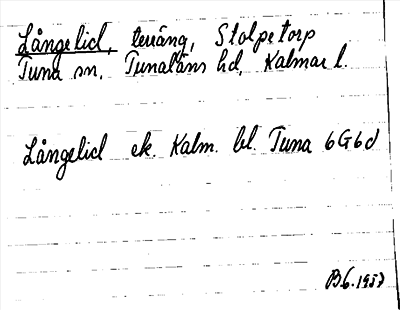 Långelid, terräng, Stolpetorp
Tuna sn, Tunaläns hd, Kalmar l.
Långelid ek. Kalm. bl. Tuna 6G6d